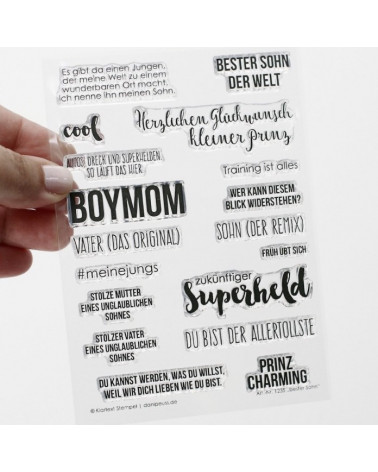 Es gibt da einen Jungen,
der meine Welt zu einem
wunderbaren Ort macht.
Ich nenne ihn meinen Sohn.
BESTER SOHN
DER WELT
cool
Herzlichen Glückwunsch
kleiner Prinz
AUTOS, DRECK UND SUPERHELDEN
SO LÄUFT DAS HIER.
Training ist alles
BOYMOM
WER KANN DIESEM
BLICK WIDERSTEHEN?
VATER (DAS ORIGINAL)
SOHN (DER REMIX)
FRÜH ÜBT SICH
#meinejungs
zukünftiger
Superheld
STOLZE MUTTER
EINES UNGLAUBLICHEN
SOHNES
STOLZER VATER
EINES UNGLAUBLICHEN
SOHNES
DU BIST DER ALLERTOLLSTE
DU KANNST WERDEN, WAS DU WILLST,
WEIL WIR DICH LIEBEN WIE DU BIST.
PRINZ
CHARMING
© Klartext Stempel |
Art.-Nr. 1235 „Bester Sohn“